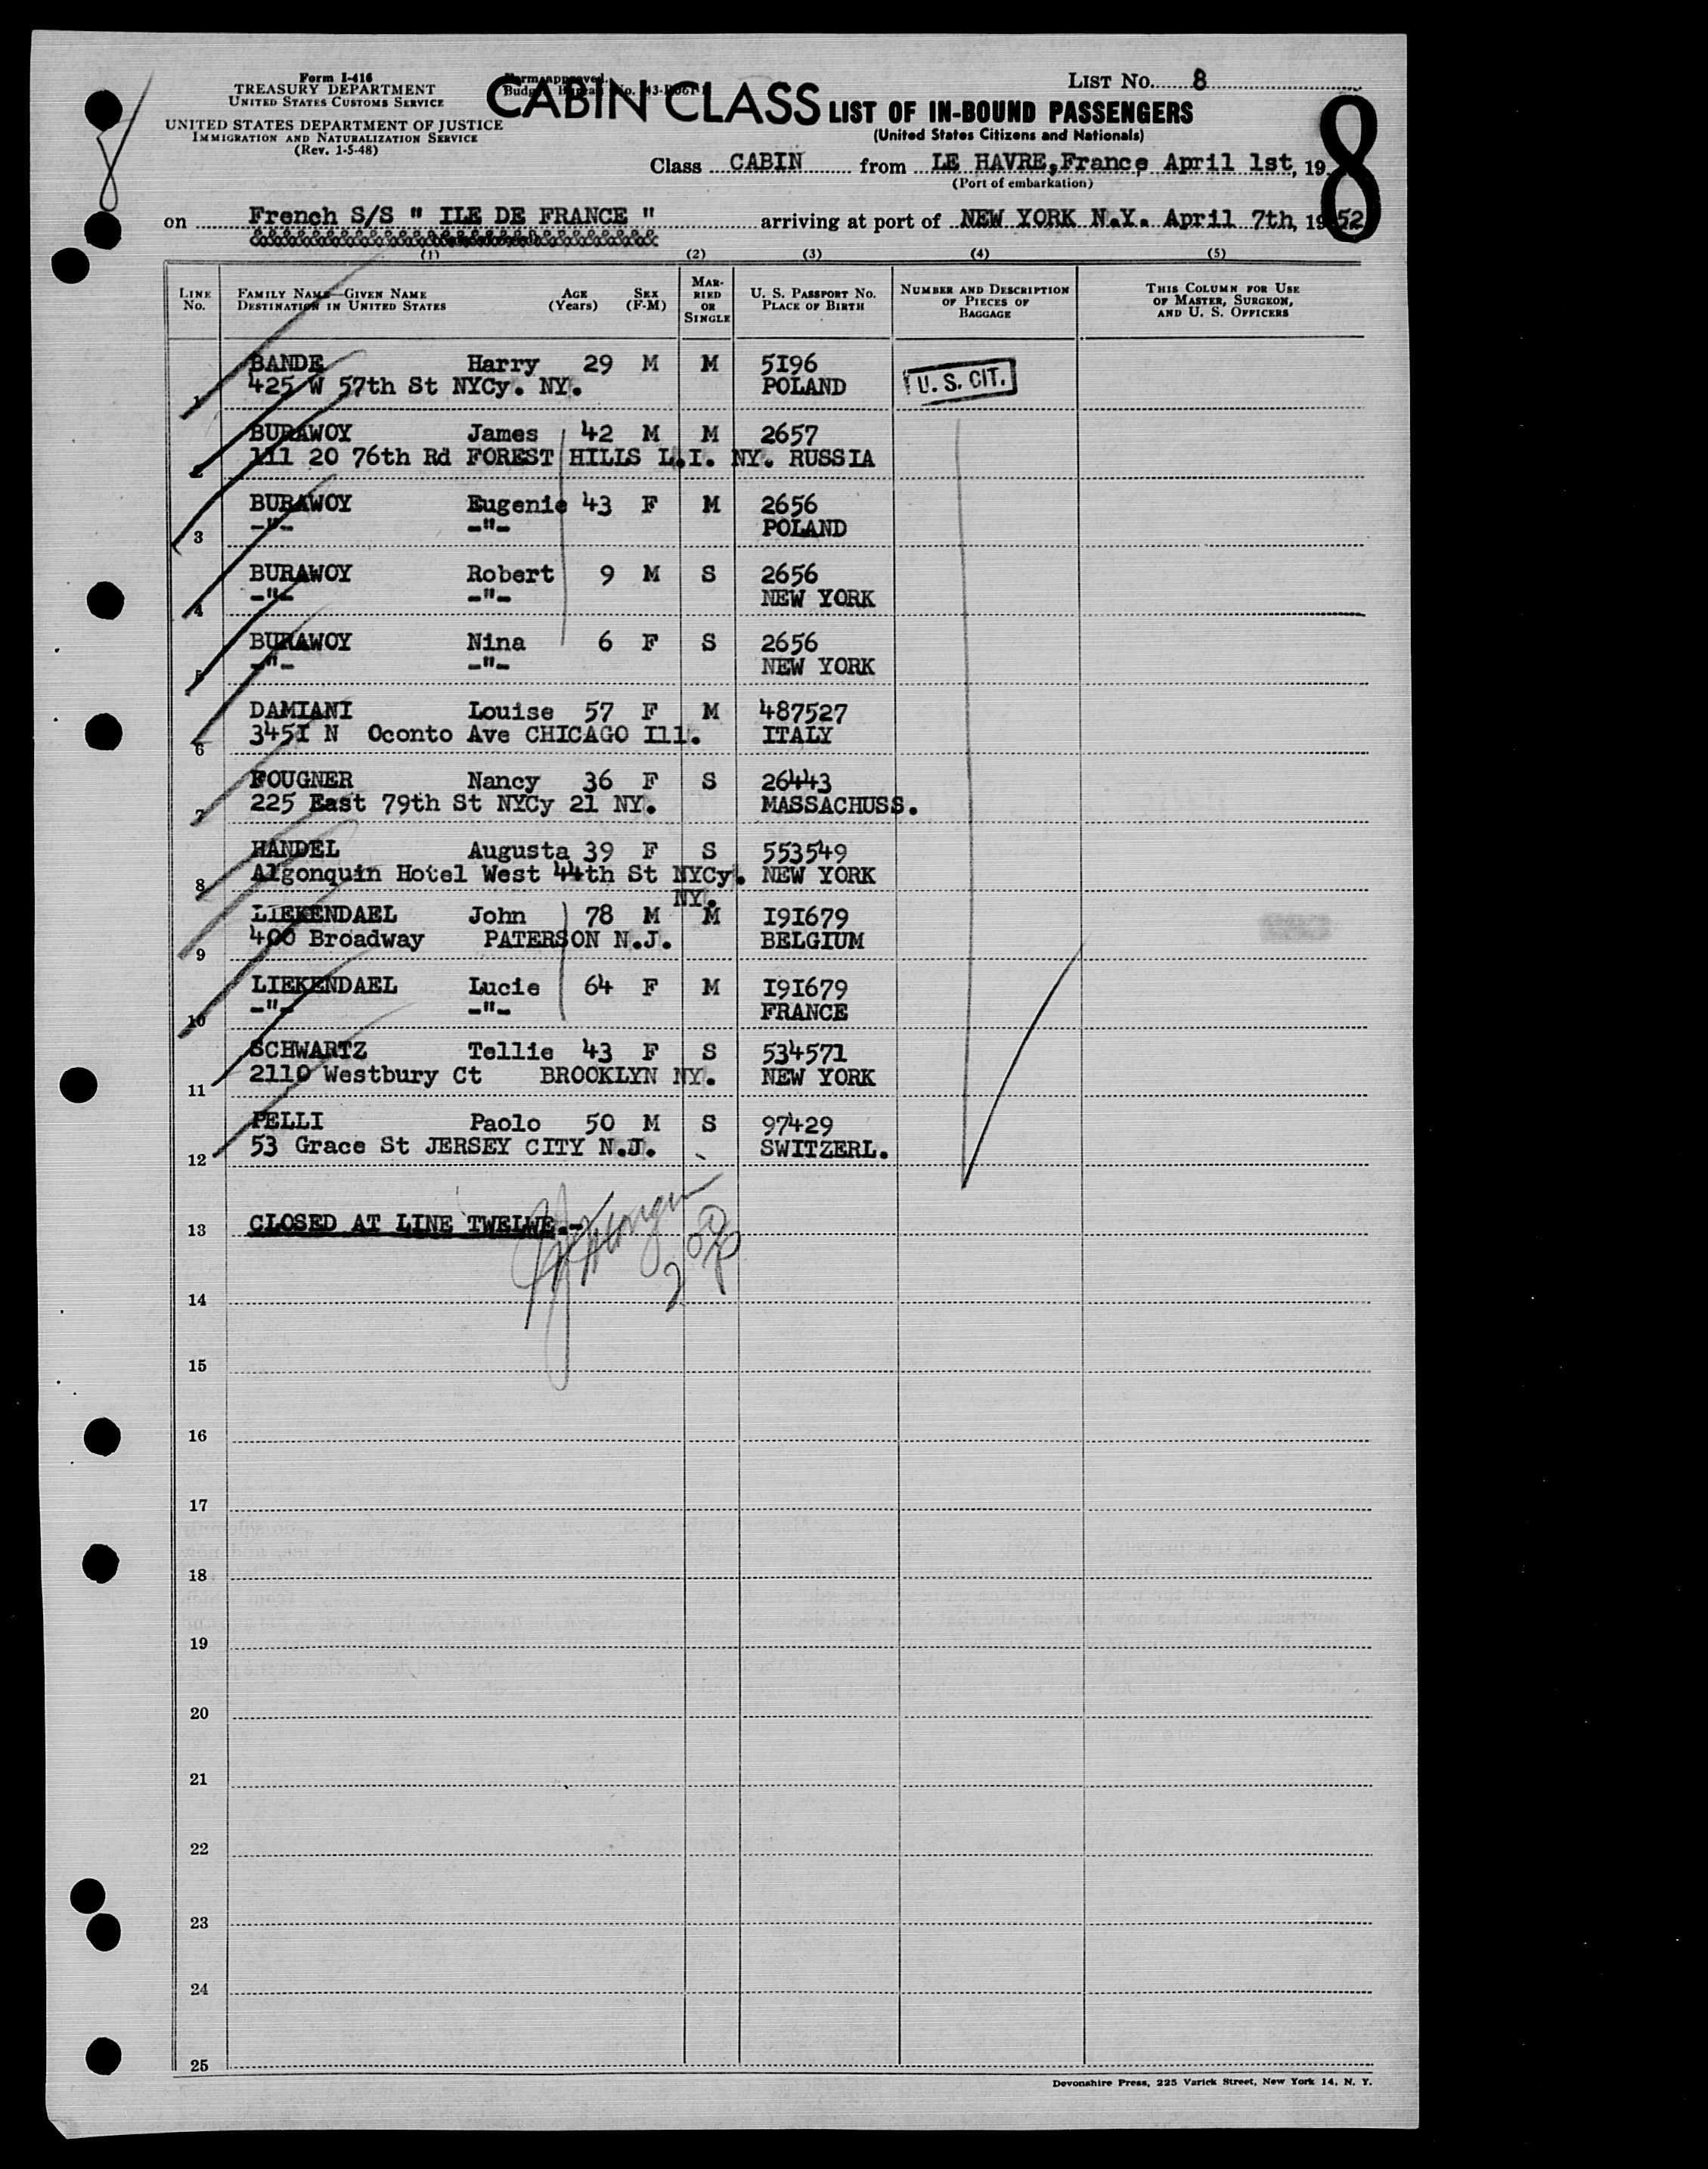 Form I-416
TREASURY DEPARTMENT
UNITED STATES CUSTOMS SERVICE
UNITED STATES DEPARTMENT OF JUSTICE
IMMIGRATION AND NATURALIZATION SERVICE
(Rev. 1-5-48)
Form approved.
Budget Bureau No. 43-
CABIN CLASS
LIST NO. 8
LIST OF IN-BOUND PASSENGERS
(United States Citizens and Nationals)
8
Class CABIN from LE HAVRE, France April 1st, 19
(Port of embarkation)
on French S/S " ILE DE FRANCE " arriving at port of NEW YORK N.Y. April 7th, 1952
(1) (2) (3) (4) (5)
LINE No. FAMILY NAME—GIVEN NAME DESTINATION IN UNITED STATES AGE (Years) SEX (F-M) MARRIED OR SINGLE U. S. PASSPORT NO. PLACE OF BIRTH NUMBER AND DESCRIPTION OF PIECES OF BAGGAGE THIS COLUMN FOR USE OF MASTER, SURGEON, AND U. S. OFFICERS
BANDE Harry 29 M M 5196
1 425 W 57th St NYCy. NY. POLAND
U. S. CIT.
BURAWOY James 42 M M 2657
2 111 20 76th Rd FOREST HILLS L.I. NY. RUSSIA
BURAWOY Eugenie 43 F M 2656
3 -"- -"- POLAND
BURAWOY Robert 9 M S 2656
4 -"- -"- NEW YORK
BURAWOY Nina 6 F S 2656
5 -"- -"- NEW YORK
DAMIANI Louise 57 F M 487527
6 3451 N Oconto Ave CHICAGO Ill. ITALY
FOUGNER Nancy 36 F S 26443
7 225 East 79th St NYCy 21 NY. MASSACHUSS.
HANDEL Augusta 39 F S 553549
8 Algonquin Hotel West 44th St NYCy. NEW YORK
NY.
LIEKENDAEL John 78 M M 191679
9 400 Broadway PATERSON N.J. BELGIUM
LIEKENDAEL Lucie 64 F M 191679
10 -"- -"- FRANCE
SCHWARTZ Tellie 43 F S 534571
11 2110 Westbury Ct BROOKLYN NY. NEW YORK
PELLI Paolo 50 M S 97429
12 53 Grace St JERSEY CITY N.J. SWITZERL.
13 CLOSED AT LINE TWELWE.-
14
15
16
17
18
19
20
21
22
23
24
25
Devonshire Press, 225 Varick Street, New York 14, N. Y.